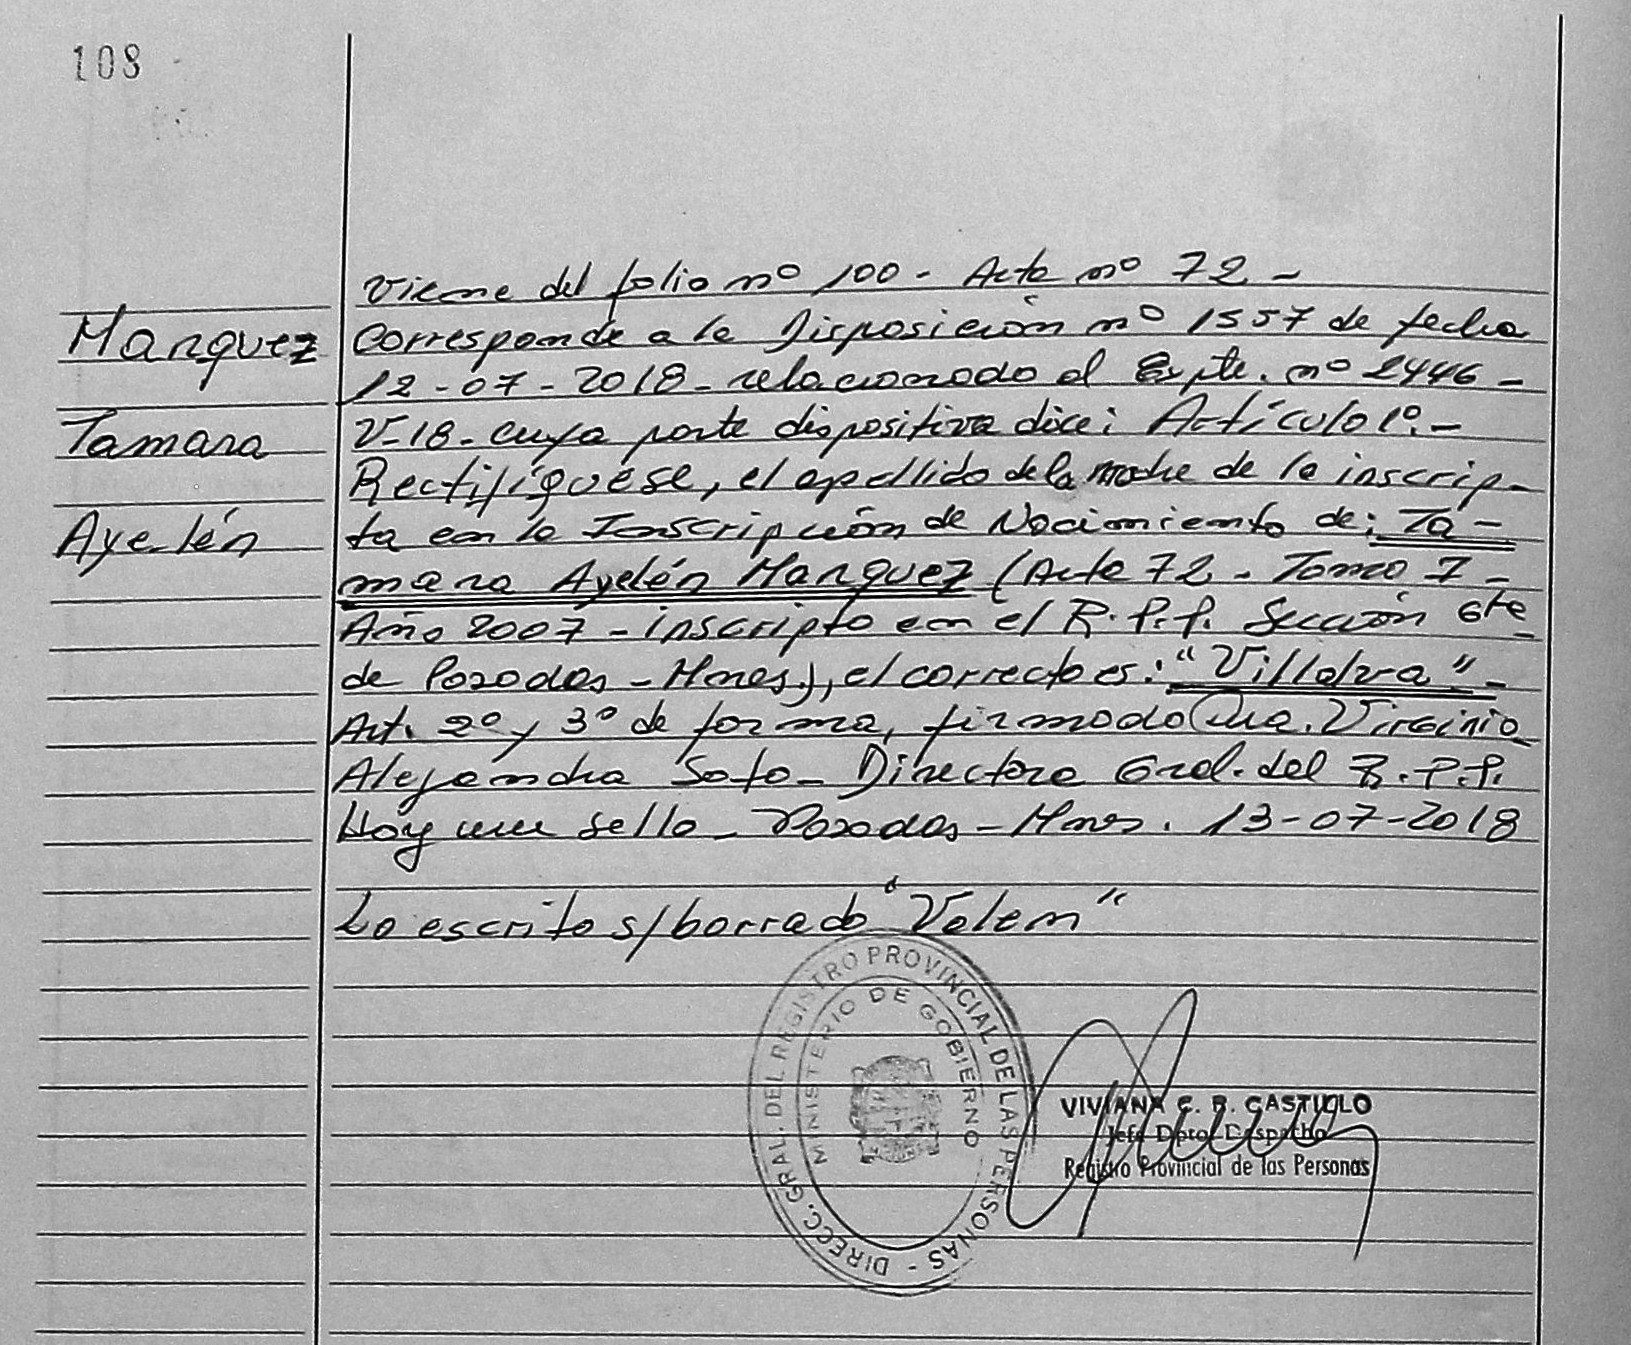 108
Viene del folio nº 100 - Acta nº 72 -
Marquez
Corresponde a la Disposición nº 1557 de fecha
12-07-2018 - relacionado al Expte. nº 2446 -
Tamara
V-18 - cuya parte dispositiva dice: Artículo 1º. -
Rectifíquese, el apellido de la madre de la inscrip-
Ayelén
ta en la Inscripción de Nacimiento de: Ta -
mara Ayelén Marquez (Acta 72 - Tomo 7 -
Año 2007 - inscripto en el R.P.P. Sección 6ta
de Posadas - Mnes), el correcto es: "Villalva" -
Art. 2º y 3º de forma, firmado Dra. Virginia
Alejandra Soto - Directora Gral. del R.P.P.
Hay un sello - Posadas - Mnes. 13-07-2018
Lo escrito s/borrado "Valen"
DIRECC. GRAL. DEL REGISTRO PROVINCIAL DE LAS PERSONAS -
MINISTERIO DE GOBIERNO
VIVIANA C. R. CASTILLO
Jefa Dpto. Despacho
Registro Provincial de las Personas